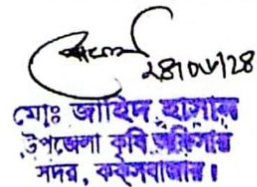 ২৪/০৮/২৪
মোঃ জাহিদ হাসান
উপজেলা কৃষি অফিসার
সদর, কক্সবাজার।